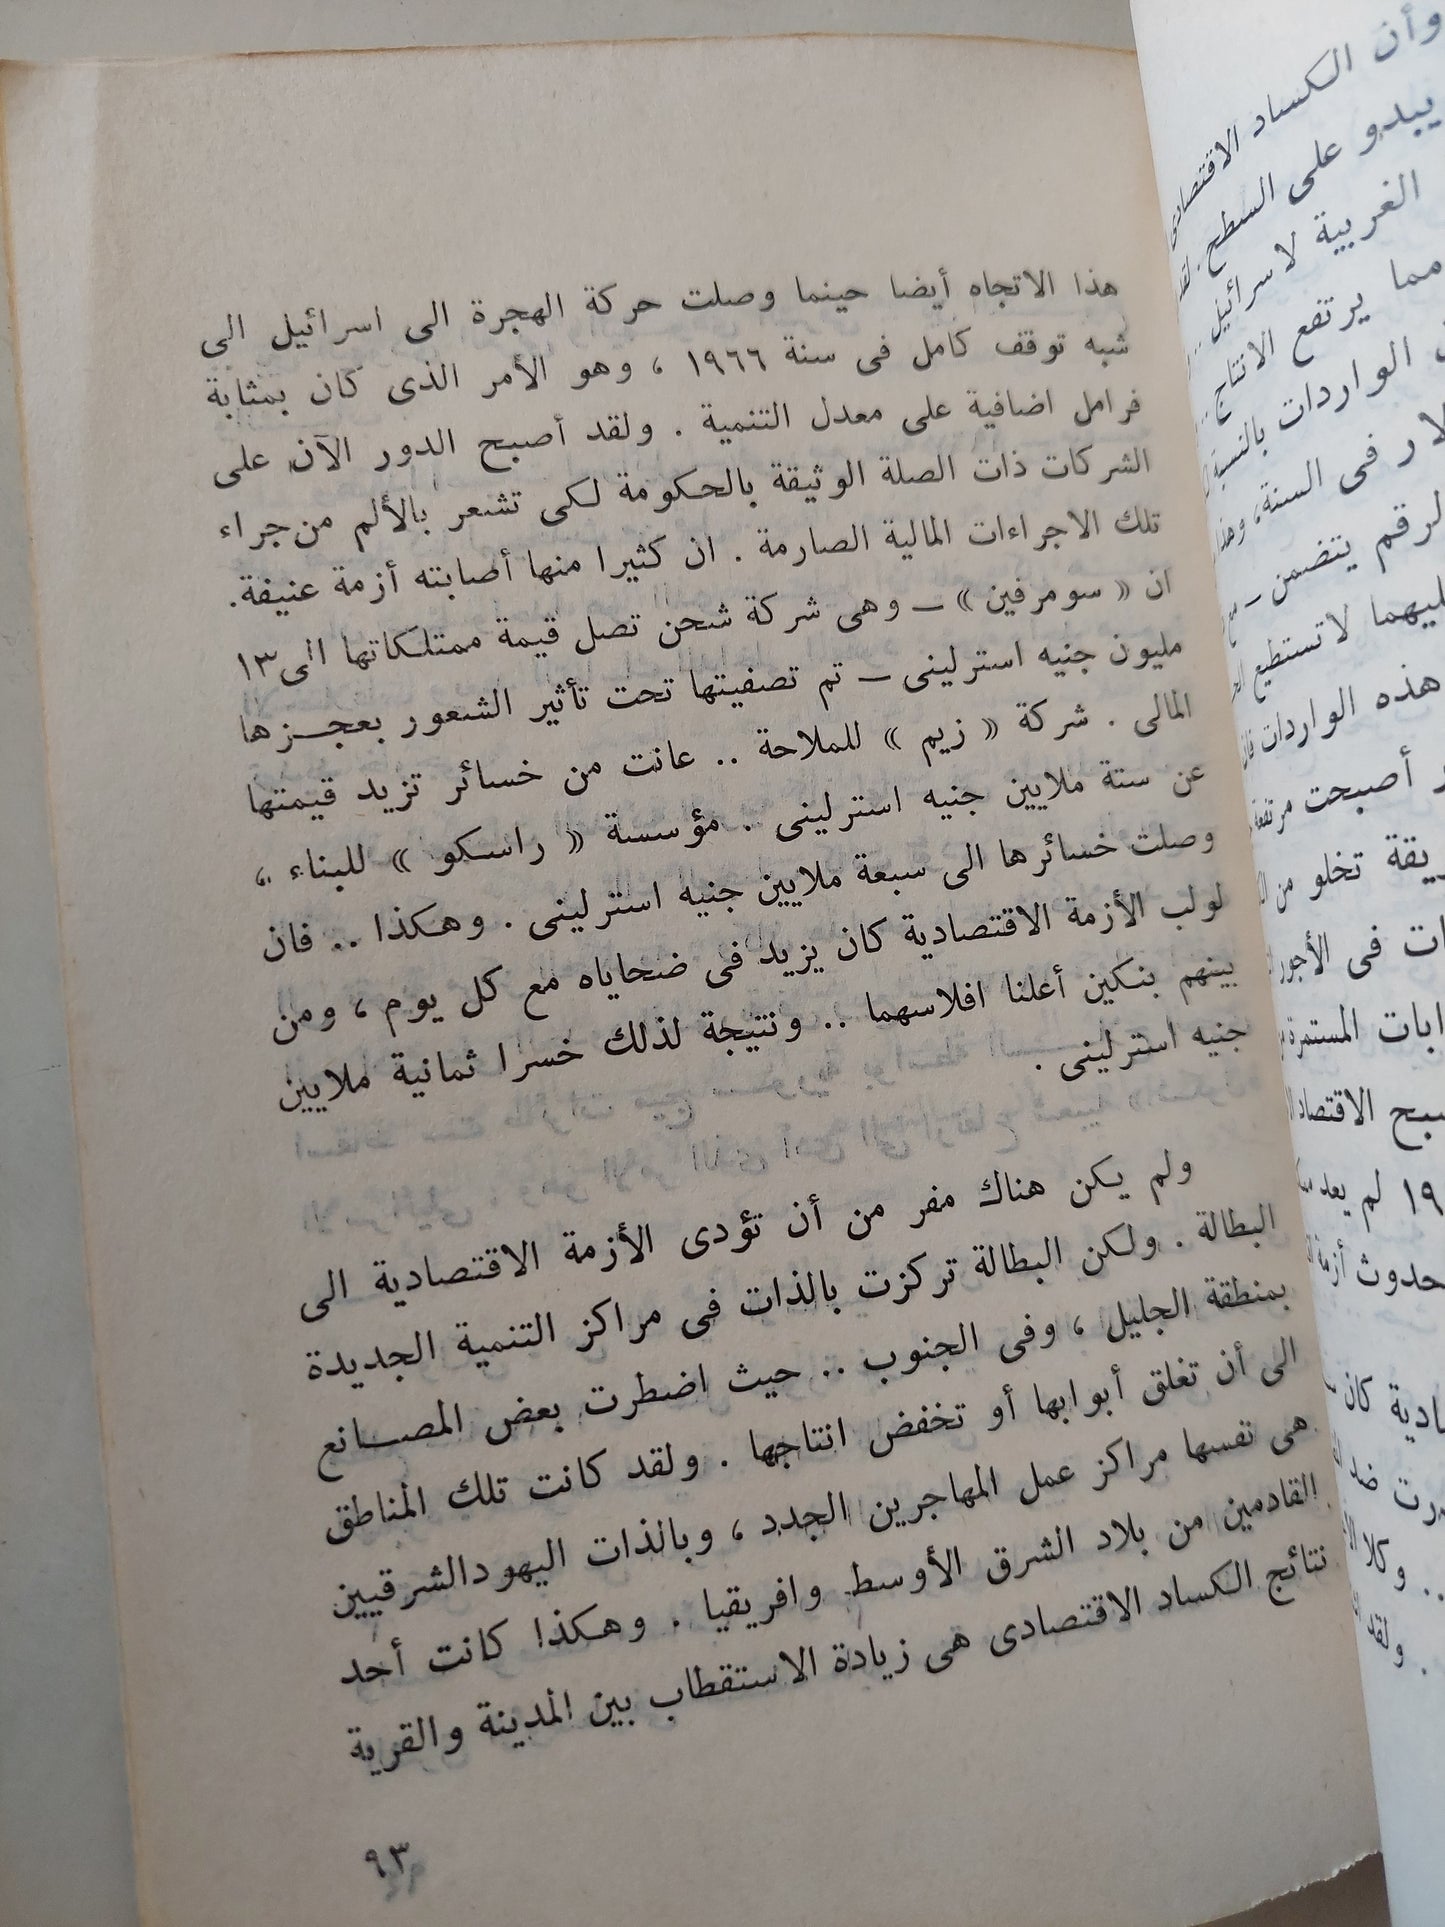 هذا الاتجاه أيضا حينما وصلت حركة الهجرة الى اسرائيل الى
شبه توقف كامل فى سنة ١٩٦٦ ، وهو الأمر الذى كان بمثابة
فرامل اضافية على معدل التنمية . ولقد أصبح الدور الآن على
الشركات ذات الصلة الوثيقة بالحكومة لكى تشعر بالألم من جراء
تلك الاجراءات المالية الصارمة . ان كثيرا منها أصابته أزمة عنيفة.
ان « سومرفين » ــ وهى شركة شحن تصل قيمة ممتلكاتها الى ١٣
مليون جنيه استرلينى ــ تم تصفيتها تحت تأثير الشعور بعجــزها
المالى . شركة « زيم » للملاحة .. عانت من خسائر تزيد قيمتها
عن ستة ملايين جنيه استرلينى . مؤسسة « راسكو » للبناء ،
وصلت خسائرها الى سبعة ملايين جنيه استرلينى . وهكذا .. فان
لولب الأزمة الاقتصادية كان يزيد فى ضحاياه مع كل يوم ، ومن
بينهم بنكين أعلنا افلاسهما .. ونتيجة لذلك خسرا ثمانية ملايين
جنيه استرلينى .
ولم يكن هناك مفر من أن تؤدى الأزمة الاقتصادية الى
البطالة . ولكن البطالة تركزت بالذات فى مراكز التنمية الجديدة
بمنطقة الجليل ، وفى الجنوب .. حيث اضطرت بعض المصــانع
الى أن تغلق أبوابها أو تخفض انتاجها . ولقد كانت تلك المناطق
هى نفسها مراكز عمل المهاجرين الجدد ، وبالذات اليهود الشرقيين
القادمين من بلاد الشرق الأوسط وافريقيا . وهكذا كانت أحد
نتائج الكساد الاقتصادى هى زيادة الاستقطاب بين المدينة والقرية
٩٣
وأن الكساد الاقتصادى
يبدو على السطح . لقد
الغربية لاسرائيل ..
مما يرتفع الانتاج ..
الواردات بالنسبة
فى السنة، وهذا
يتضمن ــ
لا تستطيع
هذه الواردات فان
أصبحت مرتفعة
تخلو من
فى الأجور
المستمرة
الاقتصاد
لم يعد
حدوث أزمة
كان
ضد
.. وكلا
. ولقد